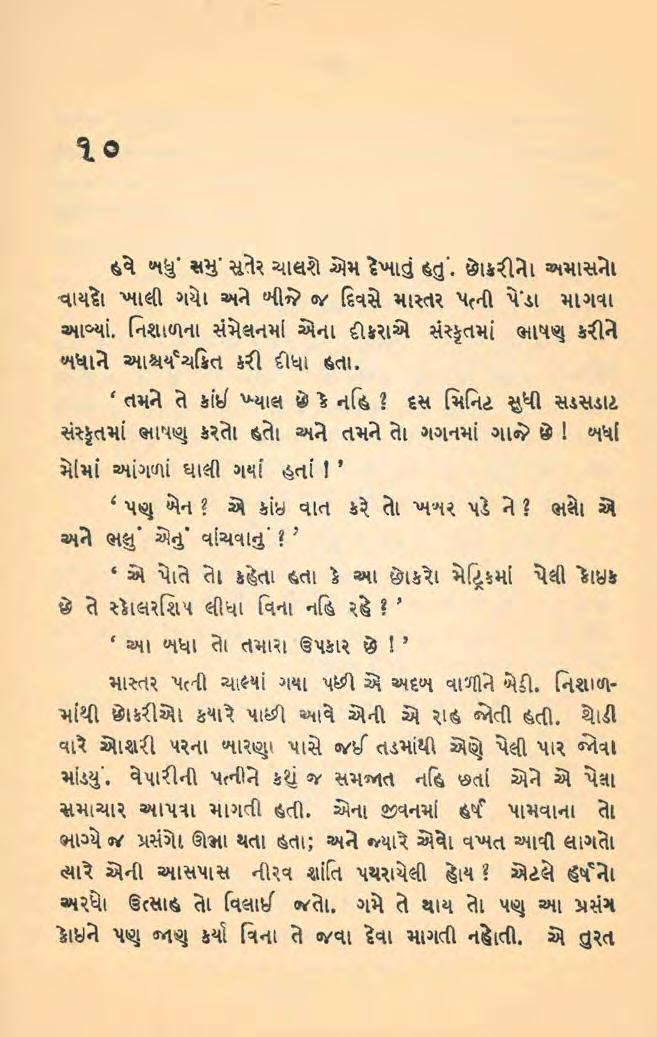 ૧૦
હવે બધું સમું સૂતેર ચાલશે એમ દેખાતું હતું. છોકરીનો અમાસનો
વાયદો ખાલી ગયો અને બીજે જ દિવસે માસ્તર પત્ની પેંડા માગવા
આવ્યાં. નિશાળના સંમેલનમાં એના દીકરાએ સંસ્કૃતમાં ભાષણ કરીને
બધાને આશ્ચર્યચકિત કરી દીધા હતા.
‘ તમને તે કાંઈ ખ્યાલ છે કે નહિ ? દસ મિનિટ સુધી સડસડાટ
સંસ્કૃતમાં ભાષણ કરતો હતો અને તમને તો ગગનમાં ગાજે છે ! બધાં
મોંમાં આંગળાં ઘાલી ગયાં હતાં ! ’
‘ પણ બેન ? એ કાંઇ વાત કરે તો ખબર પડે ને ? ભલો એ
અને ભલું એનું વાંચવાનું ? ’
‘ એ પોતે તો કહેતા હતા કે આ છોકરો મેટ્રિકમાં પેલી કોઇક
છે તે સ્કોલરશિપ લીધા વિના નહિ રહે ? ’
‘ આ બધા તો તમારા ઉપકાર છે ! ’
માસ્તર પત્ની ચાલ્યાં ગયા પછી એ અદબ વાળીને બેઠી. નિશાળ-
માંથી છોકરીઓ કયારે પાછી આવે એની એ રાહ જોતી હતી. થોડી
વારે ઓશરી પરના બારણા પાસે જઈ તડમાંથી એણે પેલી પાર જોવા
માંડયું. વેપારીની પત્નીને કશું જ સમજાત નહિ છતાં એને એ પેલા
સમાચાર આપવા માગતી હતી. એના જીવનમાં હર્ષ પામવાના તો
ભાગ્યે જ પ્રસંગો ઊભા થતા હતા; અને જ્યારે એવો વખત આવી લાગતો
ત્યારે એની આસપાસ નીરવ શાંતિ પથરાયેલી હોય ? એટલે હર્ષનો
અરધો ઉત્સાહ તો વિલાઈ જતો. ગમે તે થાય તો પણ આ પ્રસંગ
કોઇને પણ જાણ કર્યા વિના તે જવા દેવા માગતી નહોતી. એ તુરત